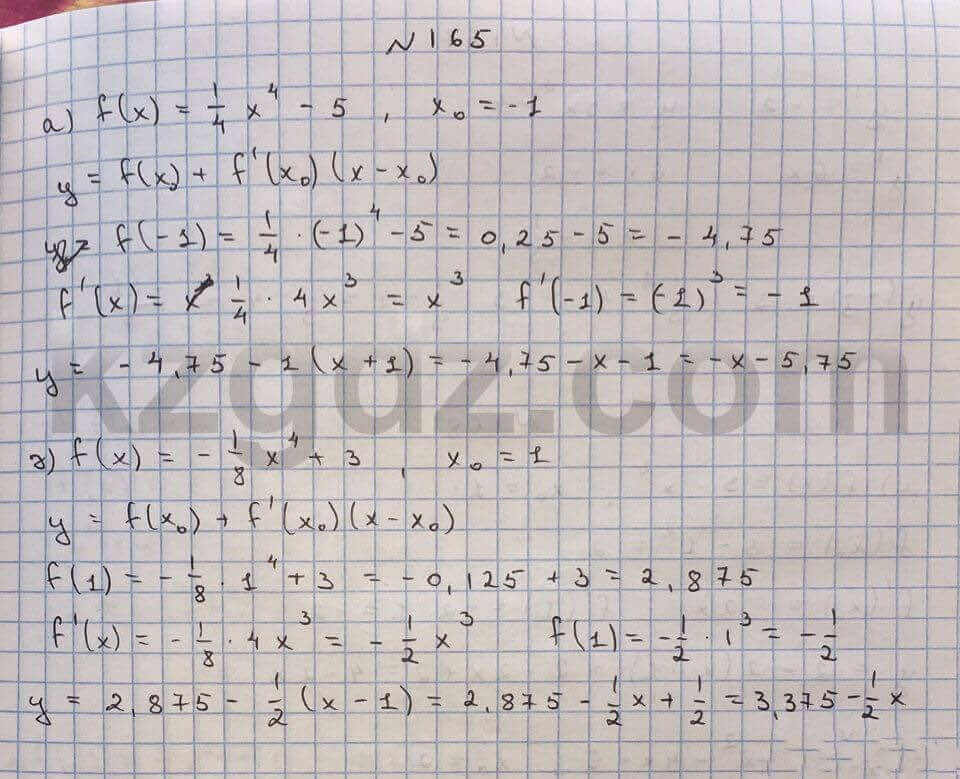 N 165
а) f(x) = 1/4 x⁴ - 5 , x₀ = -1
y = f(x) + f'(x₀) (x - x₀)
f(-1) = 1/4 · (-1)⁴ - 5 = 0,25 - 5 = - 4,75
f'(x) = 1/4 · 4x³ = x³ f'(-1) = (-1)³ = - 1
y = - 4,75 - 1 (x + 1) = - 4,75 - x - 1 = - x - 5,75
kzgdz.com
г) f(x) = - 1/8 x⁴ + 3 , x₀ = 1
y = f(x₀) + f'(x₀) (x - x₀)
f(1) = - 1/8 · 1⁴ + 3 = - 0,125 + 3 = 2,875
f'(x) = - 1/8 · 4x³ = - 1/2 x³ f(1) = - 1/2 · 1³ = - 1/2
y = 2,875 - 1/2 (x - 1) = 2,875 - 1/2 x + 1/2 = 3,375 - 1/2 x